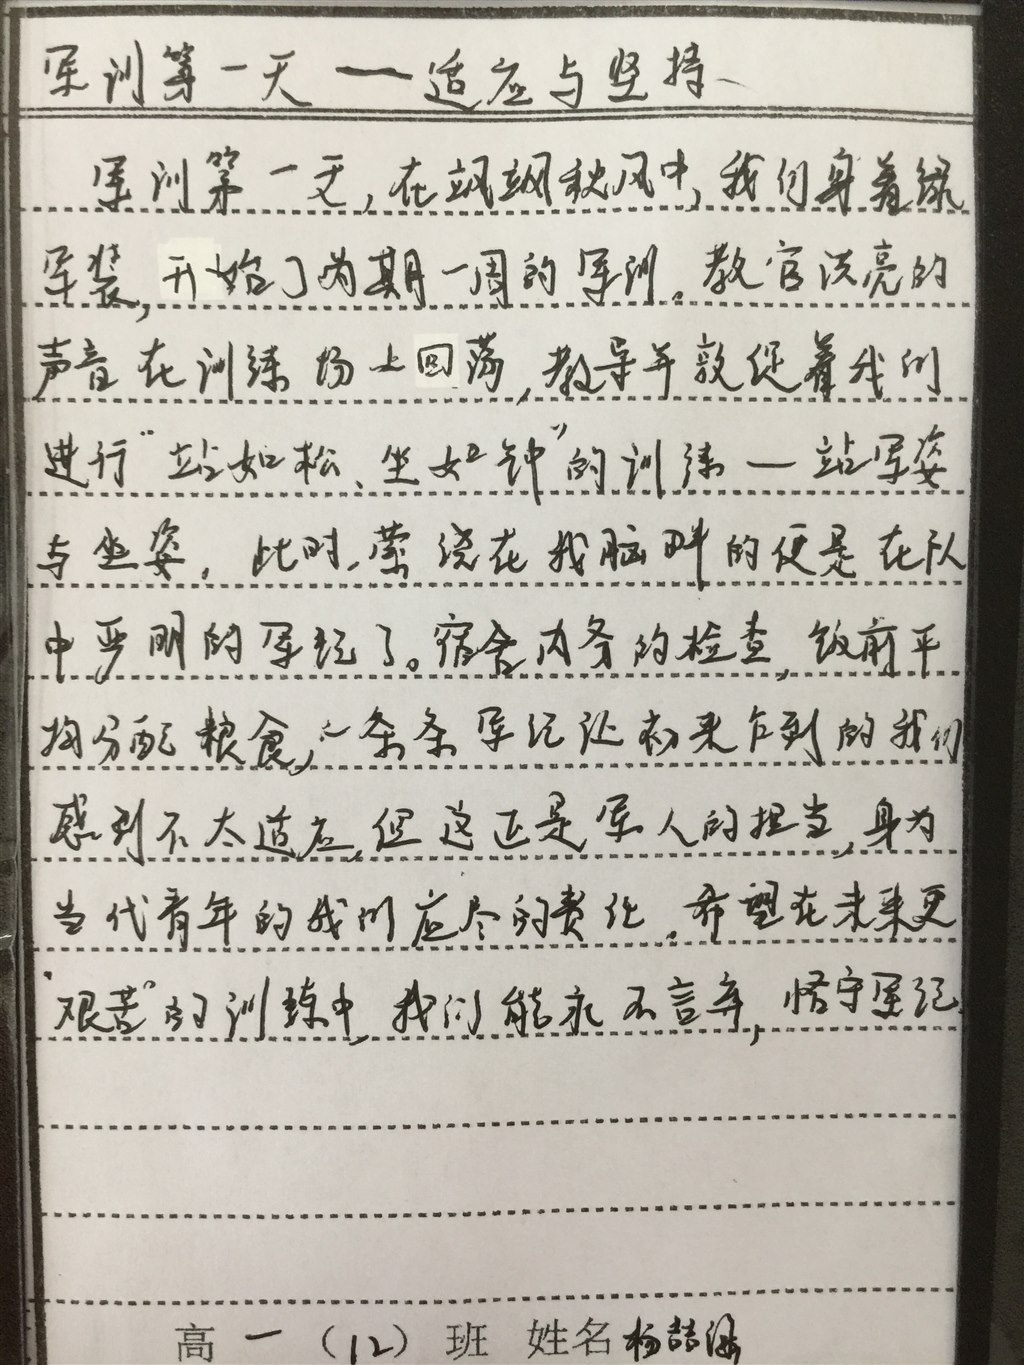 军训第一天——适应与坚持
军训第一天,在飒飒秋风中,我们身着绿
军装,开始了为期一周的军训。教官洪亮的
声音在训练场上回荡,教导并敦促着我们
进行“站如松、坐如钟”的训练—站军姿
与坐姿。此时,萦绕在我脑畔的便是在队
中严明的军纪了。宿舍内务的检查,饭前平
均分配粮食,一条条军纪让初来乍到的我们
感到不太适应,但这正是军人的担当,身为
当代青年的我们应尽的责任。希望在未来更
“艰苦”的训练中,我们能永不言弃,恪守军纪。
高一(12)班 姓名杨喆